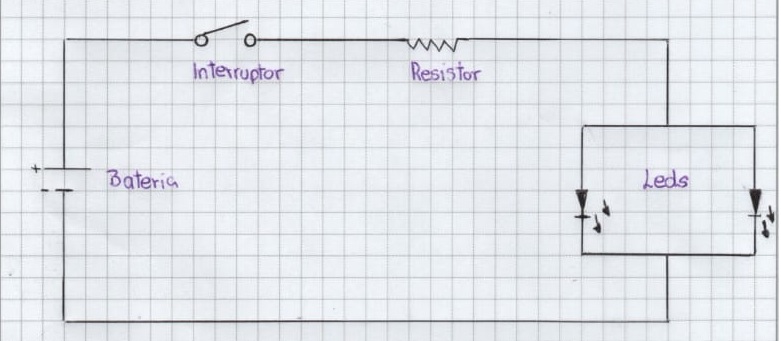 Interruptor
Resistor
+
Bateria
Leds
-